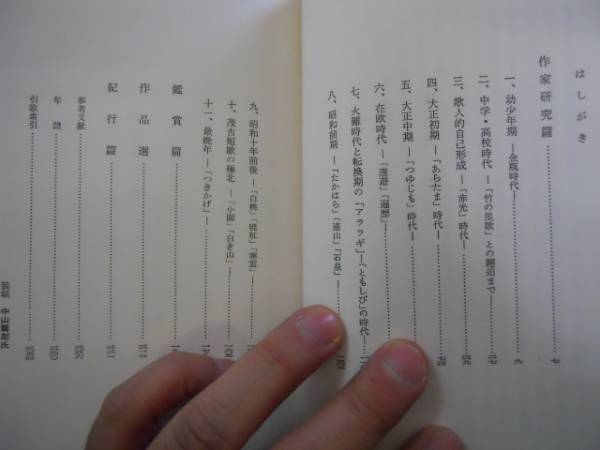 はしがき
作家研究篇 七
一、幼少年期 ―金瓶時代― 九
二、中学・高校時代 ―「竹の里歌」との邂逅まで―
三、歌人的自己形成 ―「赤光」時代―
四、大正初期 ―「あらたま」時代―
五、大正中期 ―「つゆじも」時代―
六、在欧時代 ―「遠遊」「遍歴」―
七、火難時代と転換期の『アララギ』―「ともしび」の時代
八、昭和前期 ―「たかはら」「連山」「石泉」―
九、昭和十年前後 ―「白桃」「暁紅」「寒雲」―
十、茂吉短歌の極北 ―「小園」「白き山」―
十一、最晩年 ―「つきかげ」―
鑑賞篇
作品選
紀行篇
参考文献
年譜
引歌索引
装幀